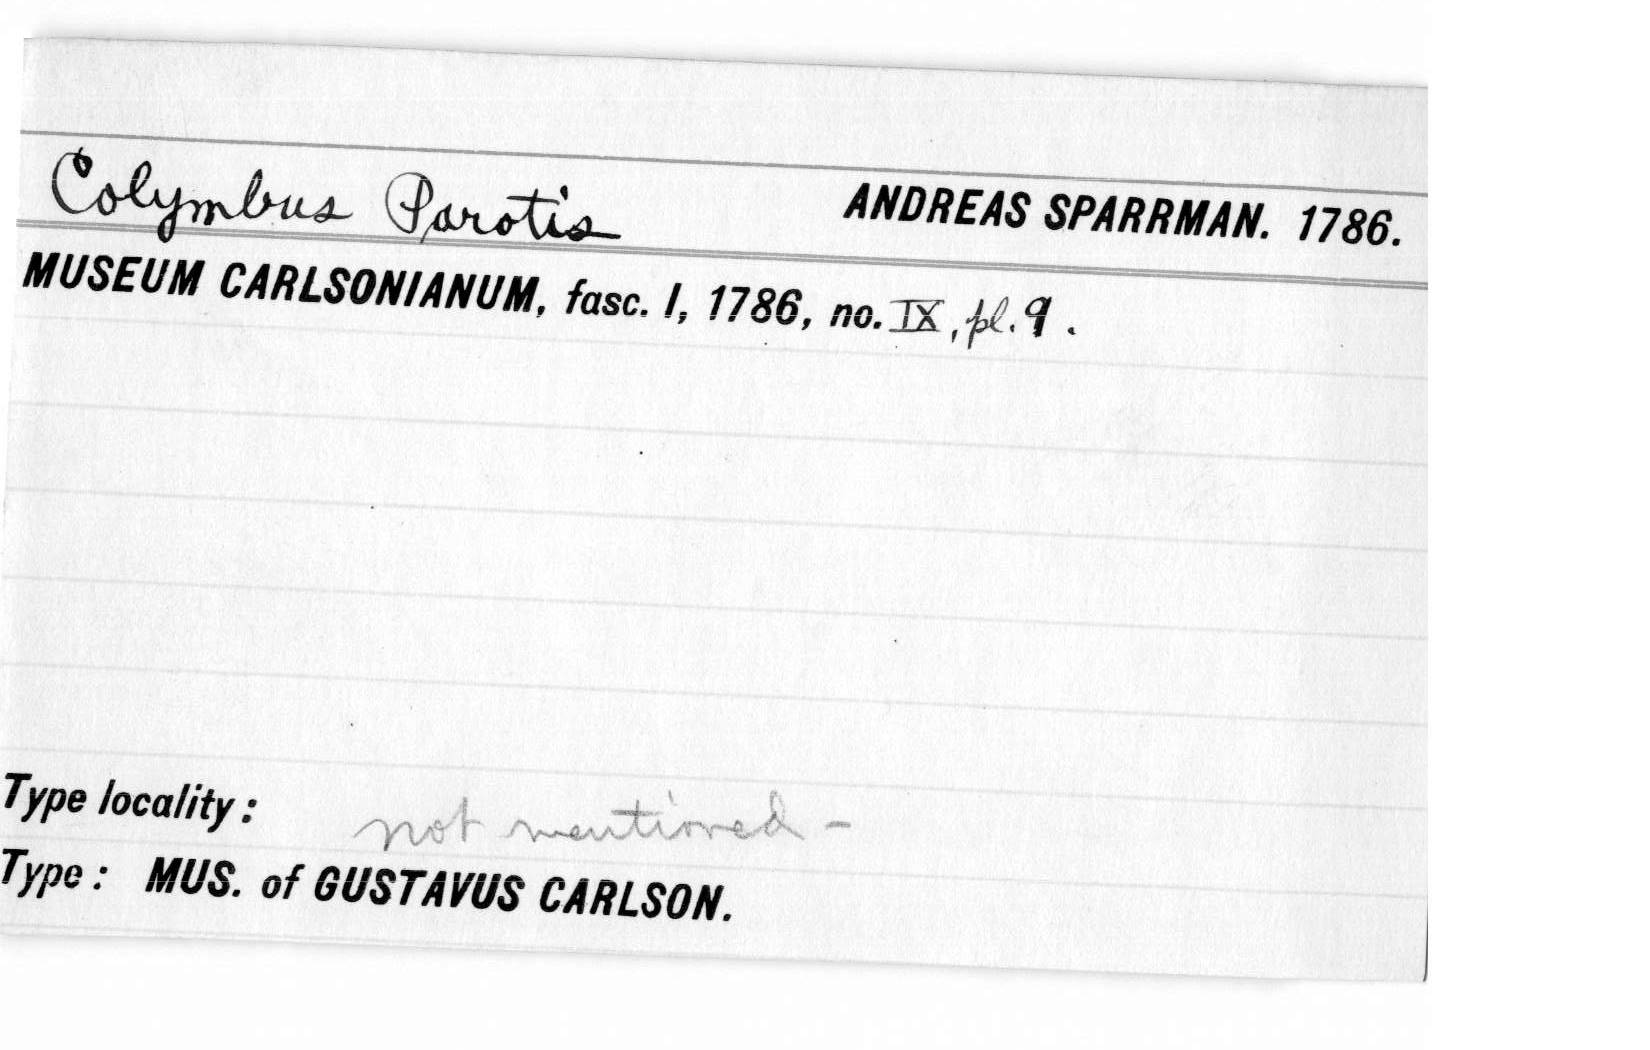 Colymbus Parotis ANDREAS SPARRMAN. 1786.
MUSEUM CARLSONIANUM, fasc. I, 1786, no. IX, pl. 9.
Type locality: not mentioned -
Type: MUS. of GUSTAVUS CARLSON.